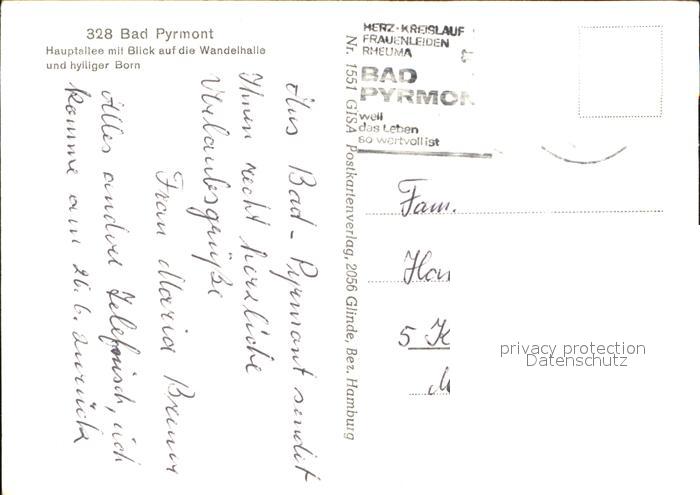 328 Bad Pyrmont
Hauptallee mit Blick auf die Wandelhalle
und hylliger Born
Aus Bad-Pyrmont sendet
Ihnen recht herzliche
Urlaubsgrüße
Frau Maria
Alles andere telefonisch, ich
komme am 26.6. zurück
Nr. 1551 GISA Postkartenverlag, 2056 Glinde, Bez. Hamburg
HERZ-KREISLAUF
FRAUENLEIDEN
RHEUMA
BAD
PYRMON
weil
das Leben
so wertvoll ist
Fam.
5 K
privacy protection
Datenschutz